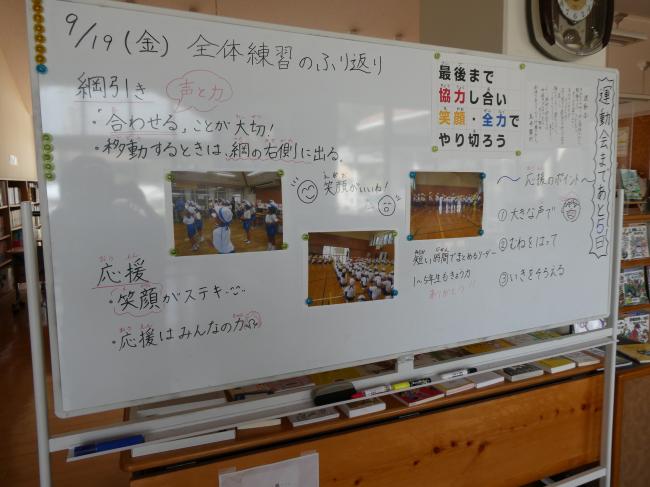 9/19(金) 全体練習のふり返り
綱引き
声と力
・合わせることが大切!
・移動するときは、綱の右側に出る。
笑顔がいいね!
応援
・笑顔がステキ
・応援はみんなの力
最後まで
協力し合い
笑顔・全力で
やり切ろう
運動会まであと5日
短い時間でまとめるリーダー
1~5年生もきょう力
ありがとう!!
~応援のポイント~
①大きな声で
②むねをはって
③いきをそろえる